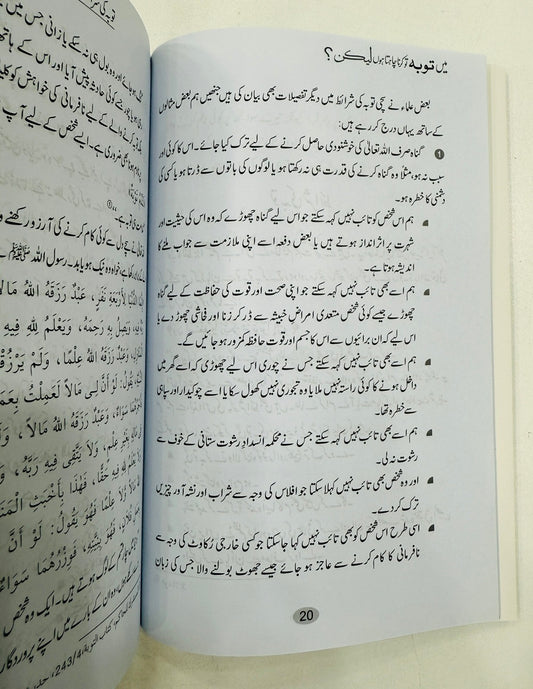 میں توبہ تو کرنا چاہتا ہوں لیکن؟
بعض علماء نے سچی توبہ کی شرائط میں دیگر تفصیلات بھی بیان کی ہیں جنھیں ہم بعض مثالوں
کے ساتھ یہاں درج کر رہے ہیں:
❶ گناہ صرف اللہ تعالیٰ کی خوشنودی حاصل کرنے کے لیے ترک کیا جائے۔ اس کا کوئی اور
سبب نہ ہو، مثلاً وہ گناہ کرنے کی قدرت ہی نہ رکھتا ہو یا لوگوں کی باتوں سے ڈرتا ہو یا کسی کی
دشمنی کا خطرہ ہو۔
ہم اس شخص کو تائب نہیں کہہ سکتے جو اس لیے گناہ چھوڑے کہ وہ اس کی حیثیت اور
شہرت پر اثر انداز ہوتے ہیں یا بعض دفعہ اسے اپنی ملازمت سے جواب ملنے کا
اندیشہ ہوتا ہے۔
ہم اسے بھی تائب نہیں کہہ سکتے جو اپنی صحت اور قوت کی حفاظت کے لیے گناہ
چھوڑے جیسے کوئی شخص متعدی امراض خبیثہ سے ڈر کر زنا اور فحاشی چھوڑ دے یا
اس لیے کہ ان برائیوں سے اس کا جسم اور قوت حافظہ کمزور ہو جائیں گے۔
ہم اسے بھی تائب نہیں کہہ سکتے جس نے چوری اس لیے چھوڑی کہ اسے گھر میں
داخل ہونے کا کوئی راستہ نہیں ملا یا وہ تجوری نہیں کھول سکا یا اسے چوکیدار اور سپاہی
سے خطرہ تھا۔
ہم اسے بھی تائب نہیں کہہ سکتے جس نے محکمہ انسداد رشوت ستانی کے خوف سے
رشوت نہ لی۔
اور وہ شخص بھی تائب نہیں کہلا سکتا جو افلاس کی وجہ سے شراب اور نشہ آور چیزیں
ترک کر دے۔
اسی طرح اس شخص کو بھی تائب نہیں کہا جا سکتا جو کسی خارجی رکاوٹ کی وجہ سے
نافرمانی کا کام کرنے سے عاجز ہو جائے جیسے جھوٹ بولنے والا جس کی زبان
20
توبہ کی
ہو اور وہ بول ہی نہ سکے یا زانی جس میں
کوئی حادثہ پیش آیا اور اس کے ہاتھ
کرنے والے کے لیے نافرمانی کی خواہش کو
ضروری ہے۔ ایسے شخص کے لیے آپ
توبہ ہے۔
دل سے کوئی کام کرنے کی آرزو رکھنے و
خواہ وہ نیک ہو یا بد۔ رسول اللہ ﷺ نے
الدُّنْيَا لِأَرْبَعَةِ نَفَرٍ، عَبْدٌ رَزَقَهُ اللهُ مَالًا
وَيَصِلُ بِهِ رَحِمَهُ، وَيَعْلَمُ لِلَّهِ فِيهِ
وَعَبْدٌ رَزَقَهُ اللهُ عِلْمًا، وَلَمْ يَرْزُقْهُ
يَقُولُ: لَوْ أَنَّ لِي مَالًا لَعَمِلْتُ بِعَمَلِ
سَوَاءٌ، وَعَبْدٌ رَزَقَهُ اللهُ مَالًا، وَ
بِغَيْرِ عِلْمٍ، وَلَا يَتَّقِي فِيهِ رَبَّهُ، وَ
يَعْلَمُ لِلَّهِ فِيهِ حَقًّا، فَهٰذَا بِأَخْبَثِ الْمَنَازِلِ
وَلَا عِلْمًا فَهُوَ يَقُولُ: لَوْ أَنَّ
فُلَانٍ، فَهُوَ بِنِيَّتِهِ، فَوِزْرُهُمَا سَوَاءٌ
کے لوگ ہوتے ہیں۔ ایک وہ شخص
کے بارے میں اپنے پروردگار
کتاب التوبة: 243/4، حدیث